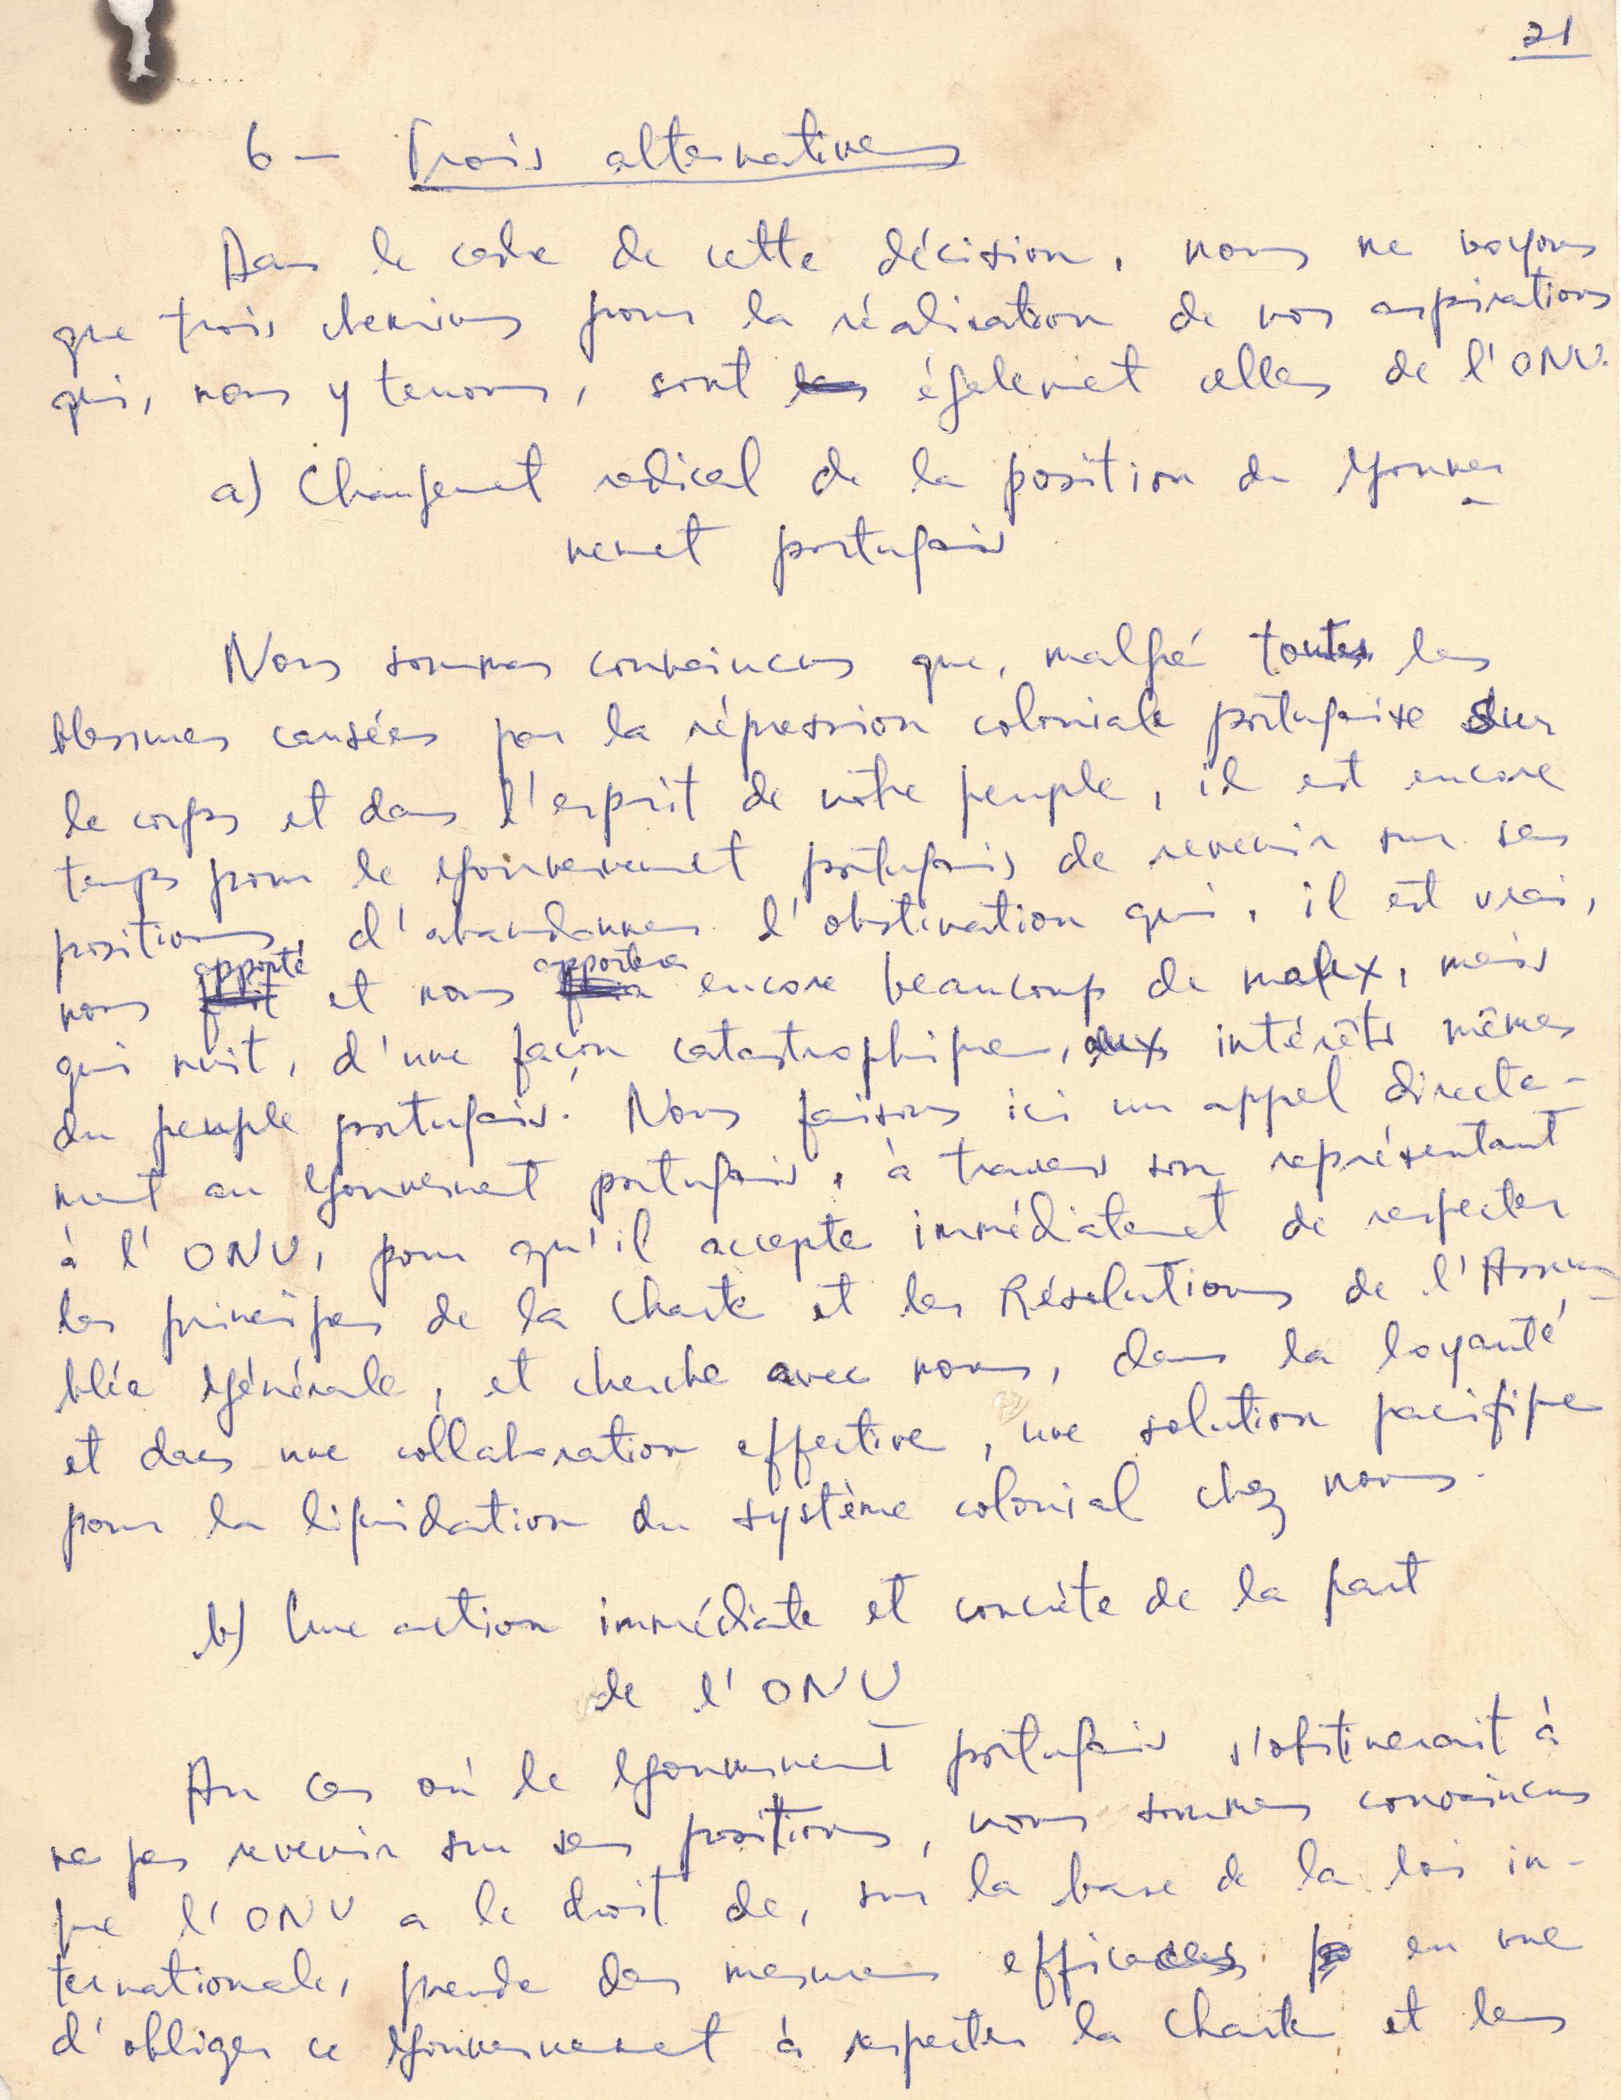 21
6 - Trois alternatives
Dans le cadre de cette décision, nous ne voyons
que trois chemins pour la réalisation de nos aspirations
qui, nous y tenons, sont les également celles de l'ONU.
a) Changement radical de la position du gouver-
nement portugais
Nous sommes convaincus que, malgré toutes les
blessures causées par la répression coloniale portugaise sur
le corps et dans l'esprit de notre peuple, il est encore
temps pour le gouvernement portugais de revenir sur ses
positions, d'abandonner l'obstination qui, il est vrai,
nous apporté et nous apportera encore beaucoup de maux, mais
qui nuit, d'une façon catastrophique, aux intérêts mêmes
du peuple portugais. Nous faisons ici un appel directe-
ment au gouvernement portugais, à travers son représentant
à l'ONU, pour qu'il accepte immédiatement de respecter
les principes de la Charte et les Résolutions de l'Assem-
blée Générale, et cherche avec nous, dans la loyauté
et dans une collaboration effective, une solution pacifique
pour la liquidation du système colonial chez nous.
b) Une action immédiate et concrète de la part
de l'ONU
Au cas où le gouvernement portugais s'obstinerait à
ne pas revenir sur ses positions, nous sommes convaincus
que l'ONU a le droit de, sur la base de la loi in-
ternationale, prendre des mesures efficaces en vue
d'obliger ce gouvernement à respecter la Charte et les